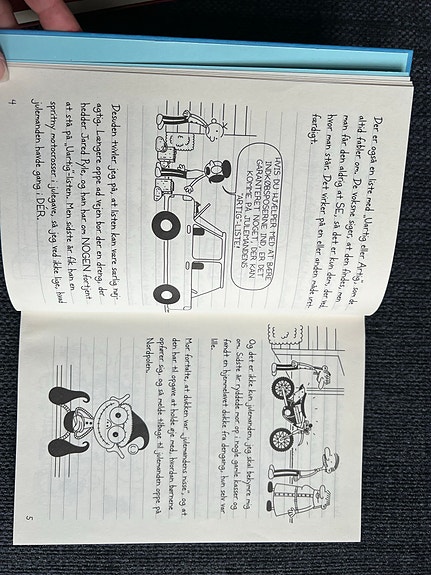 Der er også en liste med „Uartig eller Artig“, som de
altid fabler om. De voksne siger, at den findes, men
man får den aldrig at SE, så det er kun dem, der ved,
hvor man står. Det virker på en eller anden måde uret-
færdigt.
HVIS DU HJÆLPER MED AT BÆRE
INDKØBSPOSERNE IND, ER DET
GARANTERET NOGET, DER KAN
KOMME PÅ JULEMANDENS
ARTIG-LISTE!
Desuden tvivler jeg på, at listen kan være særlig nøj-
agtig. Længere oppe ad vejen bor der en dreng, der
hedder Jared Pyle, og han har om NOGEN fortjent
at stå på „Uartig“-listen. Men sidste år fik han en
spritny motocrosser i julegave, så jeg ved ikke lige, hvad
julemanden havde gang i DER.
4
Og det er ikke kun julemanden, jeg skal bekymre mig
om. Sidste år ryddede mor op i nogle gamle kasser og
fandt en hjemmelavet dukke fra dengang, hun selv var
lille.
Mor fortalte, at dukken var „julemandens nisse“, og at
den har til opgave at holde øje med, hvordan børnene
opfører sig, og så melde tilbage til julemanden oppe på
Nordpolen.
5